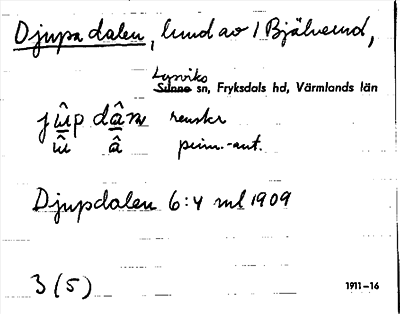 Djupa dalen, lund av 1 Bjälverud,
Lysviks
Sunne sn, Fryksdals hd, Värmlands län
renskr
û â prim.-ant.
Djupdalen 6:4 ml 1909
3 (5) 1911-16